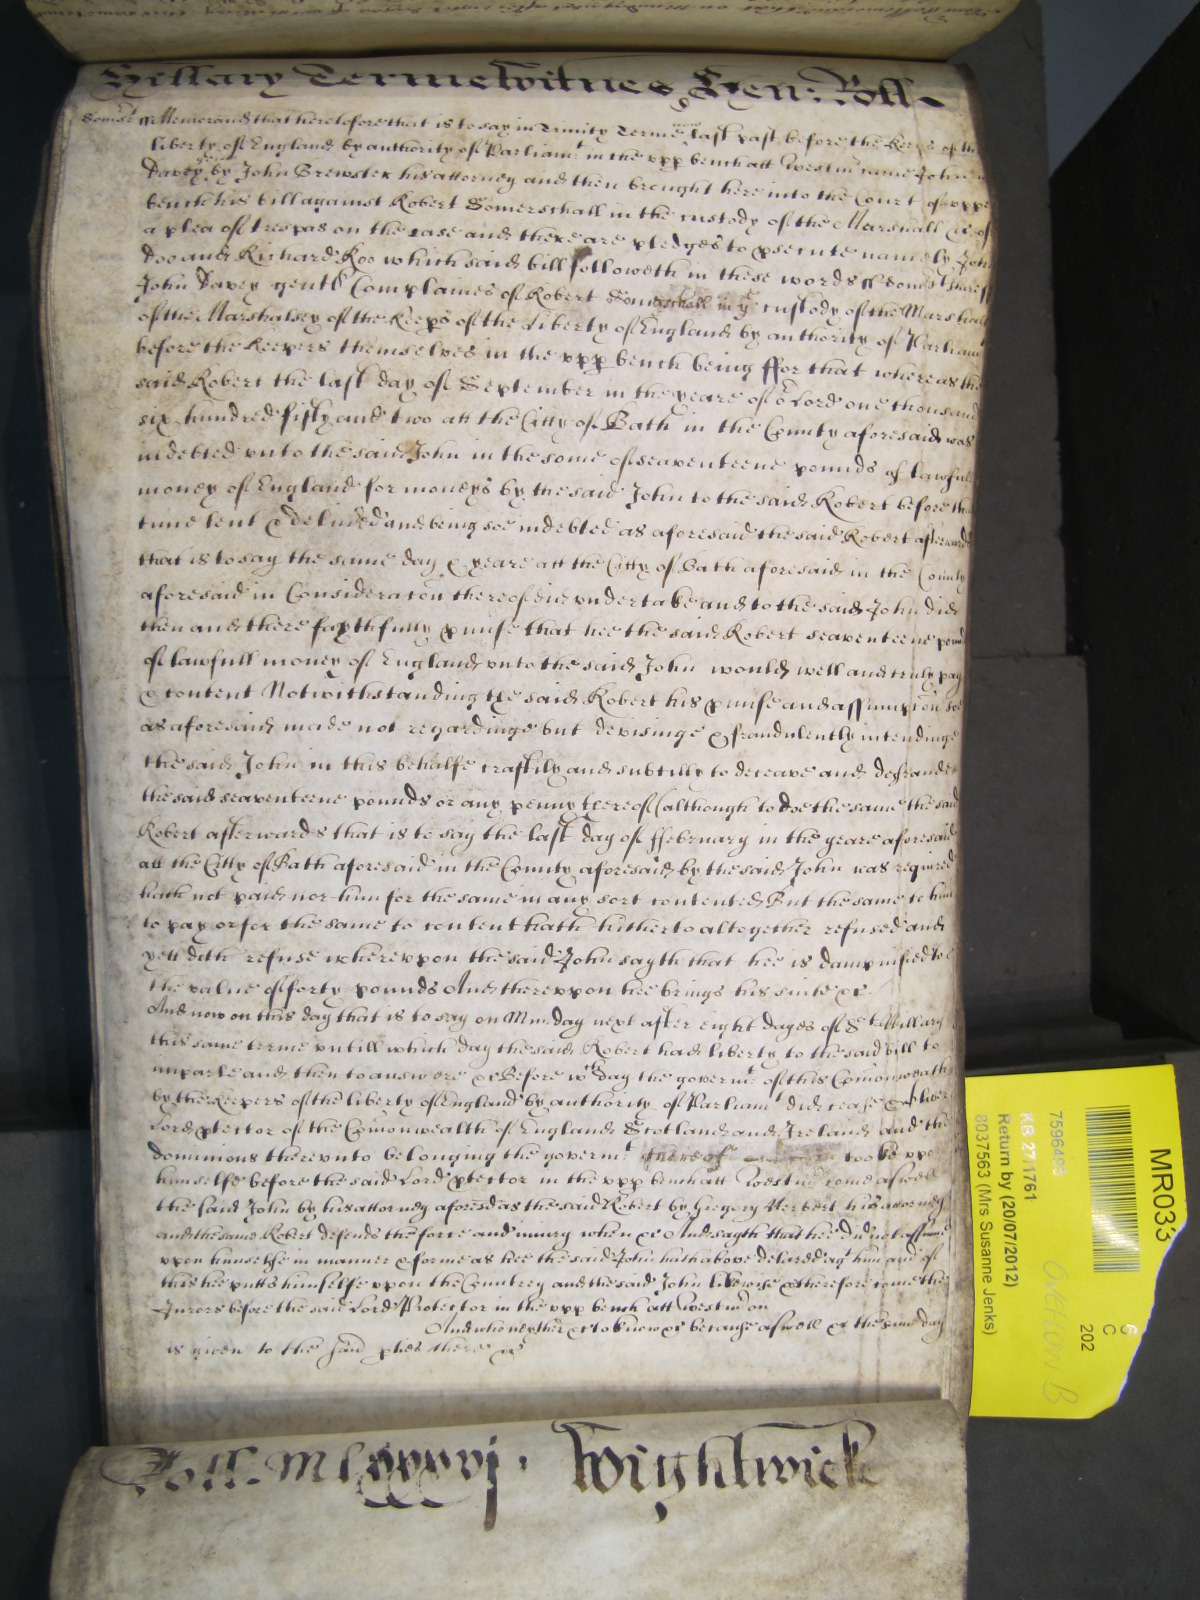 Hillary Terme Witnes Hen: Rolle
Somst ss Memorand that heretofore that is to say in Trinity Terme last past before the Keeps of the
liberty of England by authority of Parliamt in the vpp bench att Westmr came John
Davey by John Brewster his attorney and then brought here into the Court of vpp
bench his bill against Robert Somerschall in the custody of the Marshall &c of
a plea of trespas on the case and there are pledges to psecute namely John
Doo and Richard Roo which said bill followeth in these words ss Somst ss
John Davey gent Complaines of Robert Somerschall in ye custody of the Marshall
of the Marshalsey of the Keeps of the Liberty of England by authority of Parliamt
before the Keepers themselves in the vpp bench being ffor that whereas the
said Robert the last day of September in the yeare of or Lord one thousand
six hundred fifty and two att the Citty of Bath in the County aforesaid was
indebted vnto the said John in the some of seaventeene pounds of lawfull
money of England for moneys by the said John to the said Robert before that
time lent & delived and being soe indebted as aforesaid the said Robert afterwards
that is to say the same day & yeare att the Citty of Bath aforesaid in the County
aforesaid in Consideracon thereof did vndertake and to the said John did
then and there faythfully pmise that hee the said Robert seaventeene pounds
of lawfull money of England vnto the said John would well and truly pay
& content Notwithstanding the said Robert his pmise and assumpcon soe
as aforesaid made not regardinge but devisinge & fraudulently intendinge
the said John in this behalfe craftily and subtilly to deceave and defraude
the said seaventeene pounds or any penny thereof (although to doe the same the said
Robert afterwards that is to say the last day of ffebruary in the yeare aforesaid
att the Citty of Bath aforesaid in the County aforesaid by the said John was required
hath not paid nor him for the same in any sort contented But the same to him
to pay or for the same to content hath hitherto altogether refused and
yett doth refuse wherevpon the said John sayth that hee is dampnified to
the value of forty pounds And therevpon hee brings his suite &c
And now on this day that is to say on Munday next after eight dayes of St Hillary
this same terme vntill which day the said Robert had liberty to the said bill to
imparle and then to answere &c Before wch day the governmt of this Comonwealth
by the Keepers of the liberty of England by authority of Parliamt did cease & Oliver
Lord ptector of the Comonwealth of England Scotland and Ireland and the
dominions therevnto belonging the governmt thereof tooke vpon
himselfe before the said Lord ptector in the vpp bench att Westmr come aswell
the said John by his attorney aforesd as the said Robert by Gregory Herbert his attorney
and the same Robert defends the force and iniury when &c And sayth that hee did not assume
vpon himselfe in manner & forme as hee the said John hath above declared agt him and of
this hee putts himselfe vpon the Countrey and the said John likewise & therefore come the
Jurors before the said Lord Protector in the vpp bench att Westmr on
And who neyther &c to know &c because aswell &c the same day
is given to the said pties there &c
Roll MCxxxvj. Wightwick
MR033
6
C
C
202
7596495
KB 27/1761
Return by (20/07/2012)
8037563 (Mrs Susanne Jenks)